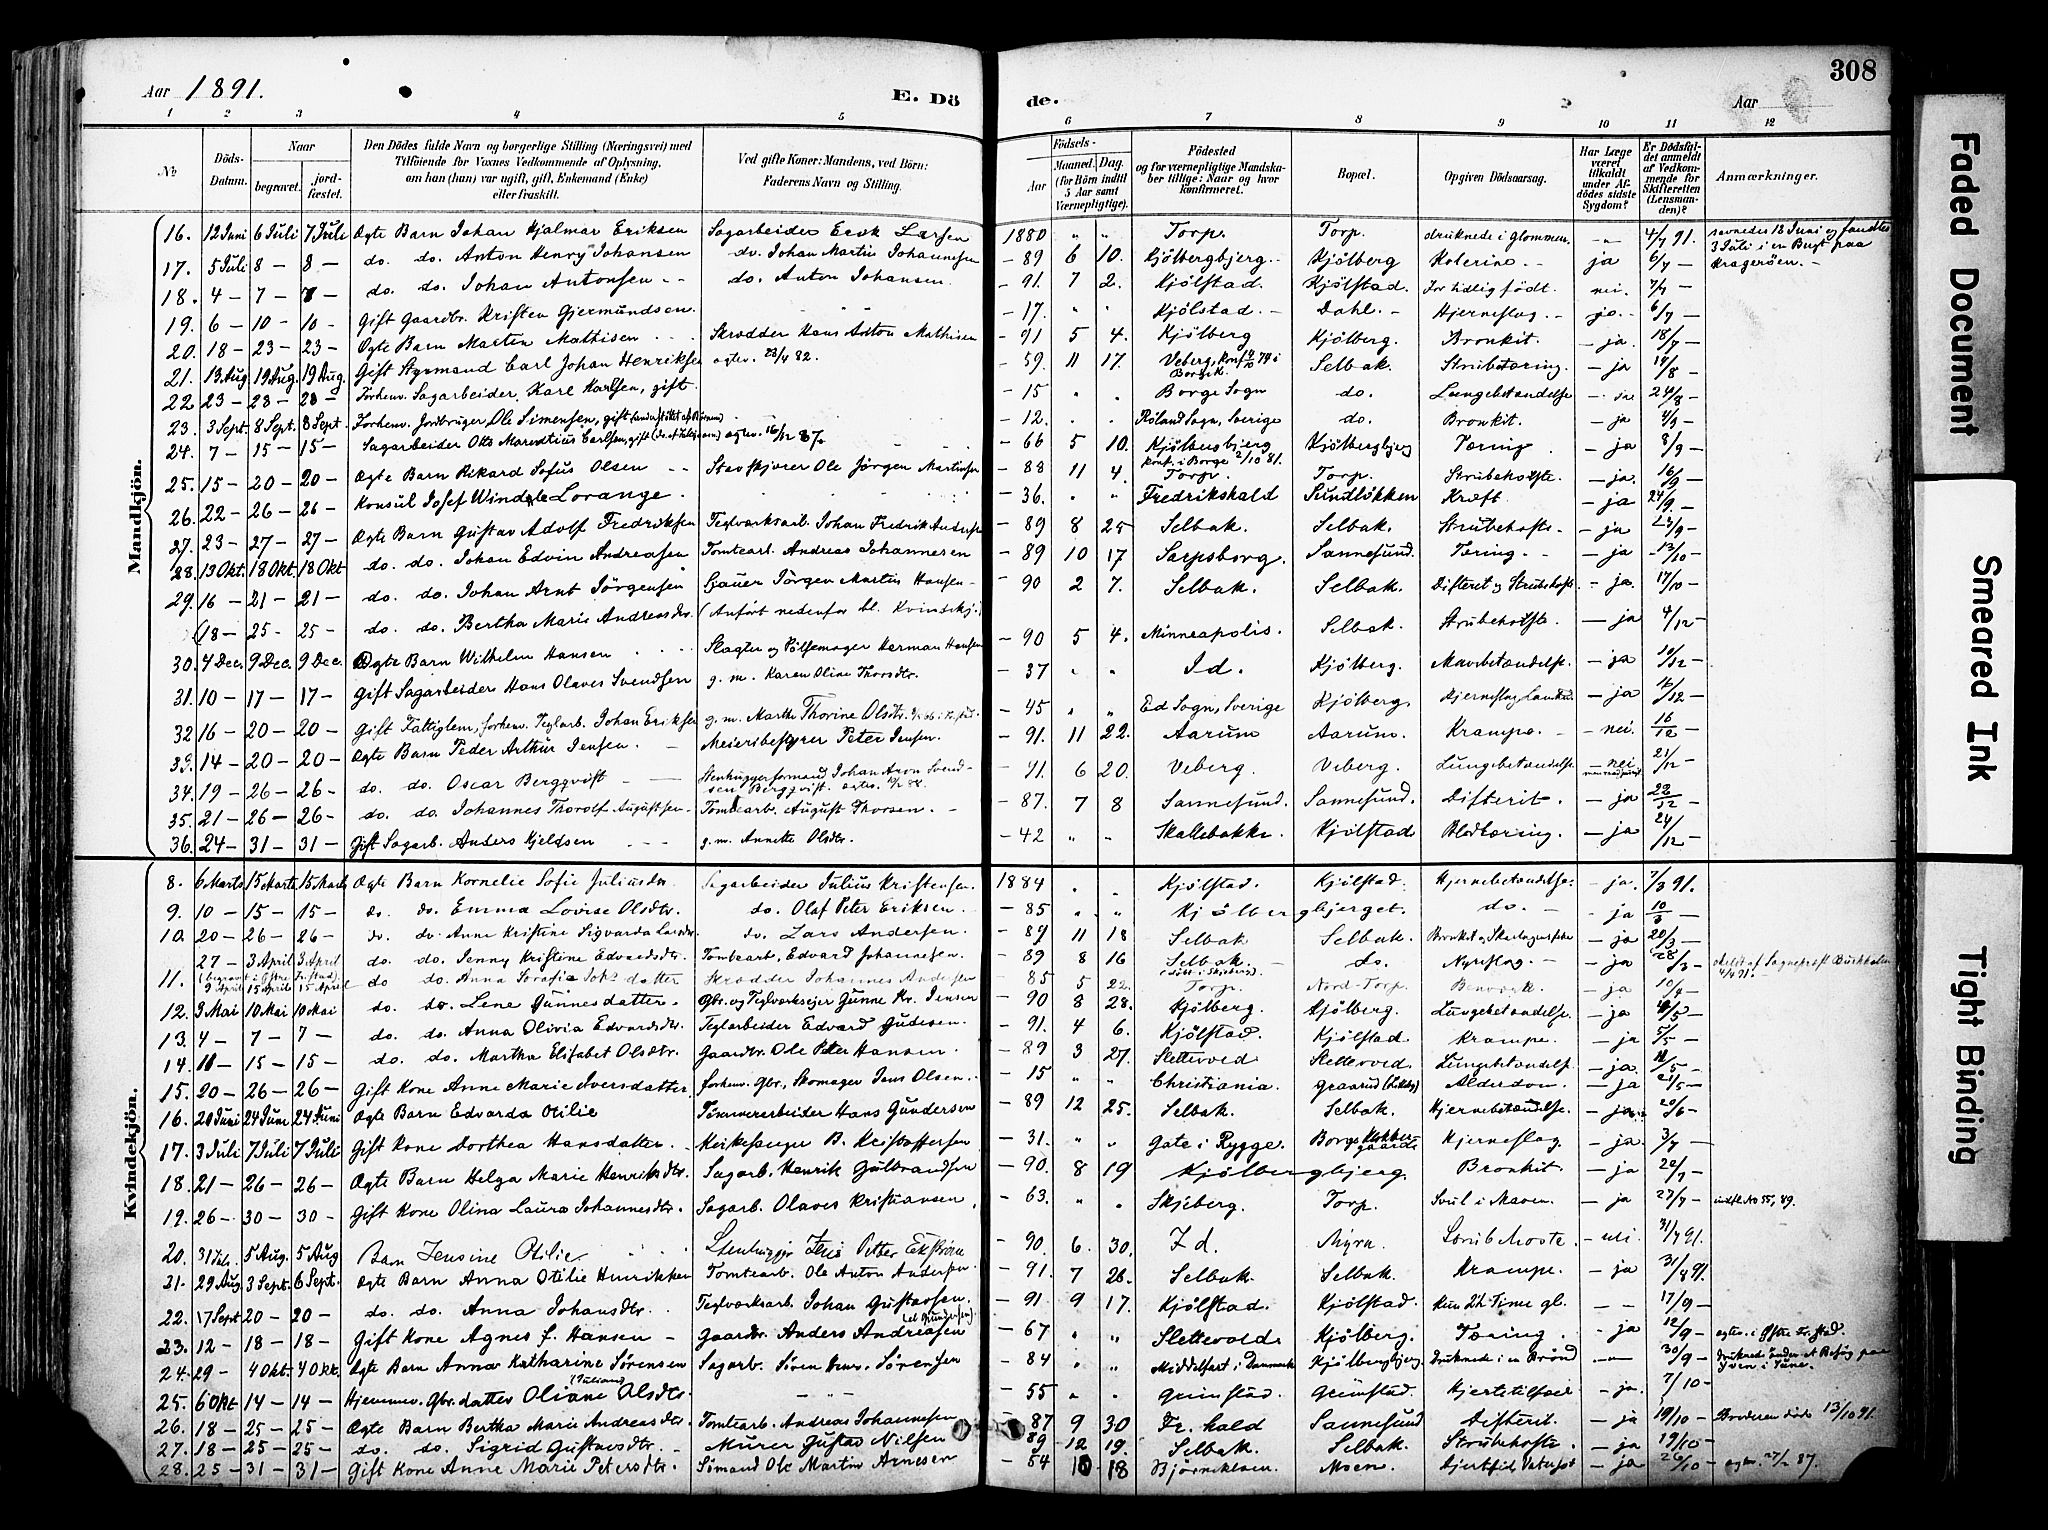 308
Aar 1891.
E. Dö de.
Aar
1 2 3 4 5 6 7 8 9 10 11 12
No
Döds-Datum.
Naar begravet. jordfæstet.
Den Dödes fulde Navn og borgerlige Stilling (Næringsvei) med Tilföiende for Voxnes Vedkommende af Oplysning, om han (hun) var ugift, gift, Enkemand (Enke) eller fraskilt.
Ved gifte Koner: Mandens, ved Börn: Faderens Navn og Stilling.
Födsels- Aar Maaned. Dag. (for Börn indtil 5 Aar samt Værnepligtige).
Födested og for værnepligtige Mandskaber tillige: Naar og hvor konfirmeret.
Bopæl.
Opgiven Dödsaarsag.
Har Læge været tilkaldt under Afdödes sidste Sygdom?
Er Dödsfaldet anmeldt af Vedkommende for Skifteretten (Lensmanden)?
Anmærkninger.
Mandkjön.
16. 12 Juni 6 Juli 7 Juli Ægte Barn Johan Hjalmar Eriksen Sagarbeider Erik Larsen 1880 " " Torp. Torp. druknede i Glommen. 4/7 91. savnedes 12 Juni og fandtes 3 Juli i en Bugt paa Kragerøen.
17. 5 Juli 8 – 8 – do. do. Anton Henry Johansen do. Johan Martin Johannesen – 89 6 10. Kjølbergbjerg. Kjølberg Kolerine. – ja 6/7 –
18. 4 – 7 – 7 – do. do. Johan Antonsen do. Anton Johansen – 91. 7 2. Kjølstad. Kjølstad. For tidlig født. nei. 7/7 –
19. 6 – 10 – 10 – Gift Gaardbr. Kristen Gjermundsen. – 17. Kjølstad. – Dahl. – Hjerneslag. – ja. – 6/7 –
20. 18 – 23 – 23 – Ægte Barn Martin Mathisen Skrædder Hans Anton Mathisen – 91 5 4. Kjølberg Kjølberg. Bronkit. – ja. 18/7 –
21. 13 Aug. 19 Aug. 19 Aug. Gift Styrmand Carl Johan Henriksen – 59 11 17. Veberg, konf. 79 i Borge K. Selbak. Strubetæring. – ja 14/8 –
22 23 – 28 – 28 – Forhenv. Sagarbeider Karl Karlsen, gift. – 15 Borge Sogn do. Lungebetændelse 24/8 –
23. 3 Sept. 8 Sept. 8 Sept. Forhenv. Jordbruger Ole Simensen, gift – 12. Sogn, Sverige do. Bronkit. – ja 4/9 –
24. 7 – 15 – 15 – Sagarbeider Otto Carlsen, gift – 66 5 10. Kjølbergbjerg konf. i Borge 2/10 81. Kjølbergbjerg Tæring. – ja 8/9 –
25. 15 – 20 – 20 – Ægte Barn Rikard Sofus Olsen Ole Jørgen Martinsen – 88 11 4. Torp. Torp. Strubehoste. – ja. 16/9 –
26. 22 – 26 – 26 – Konsul Josef Windele Lorange. – 36. Fredrikshald Sundløkken Kræft. – ja 24/9 –
27. 23 – 27 – 27 – Ægte Barn Gustav Adolf Fredriksen Teglværksarb. Johan Fredrik Andersen – 89 8 25 Selbak. Selbak. Strubehoste. – ja 23/9 –
28. 13 Okt. 18 Okt. 18 Okt do. do. Johan Edvin Andreasen Tomtearb. Andreas Johannesen – 89 10 17 Sarpsborg. Sannesund. Tæring. – ja 13/10 –
29. 16 – 21 – 21 – do. do. Johan Arnt Jørgensen Jørgen Martius Hansen – 90 2 7. Selbak. Selbak. Difterit og Strubehoste – ja. 17/10 –
(18 – 25 – 25 – do. do. Bertha Marie Andreasdtr. (Anført nedenfor bl. Kvindekj.)
30. 4 Dec. 9 Dec. 9 Dec. Ægte Barn Wilhelm Hansen Slagter og Pølsemager Herman Hansen – 90 5 4. Minneapolis. Selbak. Strubehoste. – ja 4/12 –
31. 10 – 17 – 17 – Gift Sagarbeider Hans Olaves Svendsen g. m. Karen Oline Thorsdtr. – 37 Id. Kjølberg. Mavebetændelse. – ja 10/12 –
32 16 – 20 – 20 – Gift Fattiglem, forhenv. Teglarb. Johan Eriksen g. m. Marthe Thorine Olsdtr. – 45 Ed Sogn, Sverige Kjølberg. Hjerneslag – ja 16/12 –
33. 14 – 20 – 20 – Ægte Barn Peder Arthur Jensen. Meieribestyrer Peter Jensen. – 91. 11 22. Aarum Aarum. Krampe. – nei. 16/12 –
34. 19 – 26 – 26 – do. do. Oscar Bergqvist Stenhuggerformand Johan Aron Svendsen Bergqvist. – 91. 6 20. Veberg. Veberg. Lungebetændelse – nei 21/12 –
35. 21 – 26 – 26 – do. do. Johannes Thorolf Augustsen – Tomtearb. August Thorsen. – 87. 7 8 Sannesund. Sannesund. Difterit. – ja 22/12 –
36. 24 – 31 – 31 – Gift Sagarb. Anders Kjeldsen g. m. Annette Olsdtr. – 42 Skallebakke Kjølstad Blodtæring. – ja 24/12 –
Kvindekjön.
8. 6 Marts 15 Marts 15 Marts Ægte Barn Kornelie Sofie Juliusdtr. Sagarbeider Julius Kristensen. 1884 Kjølstad. Kjølstad. Hjernebetændelse. – ja. 7/3 91.
9. 10 – 15 – 15 – do. do. Emma Lovise Olsdtr. do. Olaf Peter Eriksen. – 85 Kjølbergbjerget. do. – ja 10/3 –
10. 20 – 26 – 26 – do. do. Anne Kristine Sigvarda Larsdtr. do. Lars Andersen. – 89 11 18 Selbak Selbak. Bronkit og Skarlagensfeber – ja 20/3 –
27 – 3 April 3 April do. do. Jenny Kristine Edvardsdtr. Tomtearb. Edvard Johannesen. – 89 8 16 Selbak. do. Nyreslag. – ja 28/3 –
11. (begravet i Østre Fr.stad). 9 April 15 April 15 April do do. Anna Serafia Johs datter Skrædder Johannes Andersen 85 5 22. Torp. Nord-Torp. – ja 10/4 –
12. 3 Mai 10 Mai 10 Mai do. do. Lene Gunnesdatter. Gbr. og Teglværksejer Gunne Kr. Jensen – 90 8 28. Kjølberg. Kjølberg. Lungebetændelse. – ja 4/5 –
13. 4 – 7 – 7 – do. do. Anna Olivia Edvardsdtr. Teglarbeider Edvard Gudesen. – 91. 4 6. Kjølstad. Kjølstad. Krampe. – ja 5/5 –
14. 11 – 15 – 15 – do. do. Martha Elisabet Olsdtr. Gaardbr. Ole Peter Hansen. – 89 3 27. Slettevold Slettevold. Lungebetændelse. – ja. 11/5 –
15. 20 – 26 – 26 – Gift Kone Anne Marie Iversdatter forhenv. Gbr., Skomager Jens Olsen. – 15 Christiania. Graarud Alderdom. – ja 21/5 –
16. 20 Juni 24 Juni 24 Juni Ægte Barn Edvarda Otilie Tømmerarbeider Hans Gundersen – 89 12 25. Selbak. Selbak. Hjernebetændelse. – ja 20/6 –
17. 3 Juli 7 Juli 7 Juli Gift Kone Dorthea Hansdatter. – Kirkesanger B. Kristoffersen – 31. Gate i Rygge. Borge Klokkergaard Hjerneslag – ja. 3/7 –
18. 21 – 26 – 26 – Ægte Barn Helga Marie Henriksdtr. Sagarb. Henrik Gulbrandsen – 90. 8 19 Kjølbergbjerg. Bronkit. – ja 22/7 –
19. 26 – 30 – 30 – Gift Kone Olina Laura Johannesdtr. Sagarb. Olaves Kristiansen. – 63. Skjeberg. Torp. Svul i Maven. – ja 27/7 – indfl. No 55, 89.
20. 31 Juli 5 Aug. 5 Aug Barn Jensine Otilie Stenhugger Petter Ekstrøm – 90. 6. 30. Id. Myra. Strubehoste. – nei 31/7 91.
21. 29 Aug. 3 Sept. 6 Sept. Ægte Barn Anna Otilie Henrikken Tomtearb. Ole Anton Andersen. – 91. 7 26. Selbak. Selbak. Krampe. – ja 31/8 91.
22. 17 Sept 20 – 20 – do. do. Anna Johansdtr. Teglværksarb. Johan Gustavsen. – 91 9 17. Kjølstad. Kjølstad. Kun 2½ Time gl. 17/9 –
23. 12 – 18 – 18 – Gift Kone Agnes f. Hansen – Gaardbr. Anders Andreasen – 67 Slettevold Kjølberg. Tæring. – ja 12/9 – i Østre Fr.stad.
24. 29 – 4 Okt. 4 Okt. Ægte Barn Anna Katharine Sørensen Sagarb. Søren Sørensen – 84 Middelfart i Danmark Kjølbergbjerg Druknede i en Brønd 30/9 – Druknede under et Besøg paa Tveen i Tune.
25. 6 Okt 14 – 14 – Hjemmev. Gbr.datter Oliane (Juliane) Olsdtr. – 55 Grimstad. Grimstad. Hjertetilfæl – ja. 7/10 –
26. 18 – 25 – 25 – Ægte Barn Bertha Marie Andreasdtr. Tomtearb. Andreas Johannesen – 87 9 30 Fr. hald Sannesund Difterit. – ja 19/10 – Broderen døde 13/10 91.
27. 18 – 25 – 25 – do. do. Sigrid Gustavsdtr. – Murer Gustav Nilsen 89 12 19. Selbak. Selbak. Strubehoste. – ja 19/10 –
28. 25 – 31 – 31 – Gift Kone Anne Marie Petersdtr. Sømand Ole Martin Arnesen – 54 10 18 Bjørneklven. Moen. – ja 26/10 – 27/2 87.
Faded Document
Smeared Ink
Tight Binding